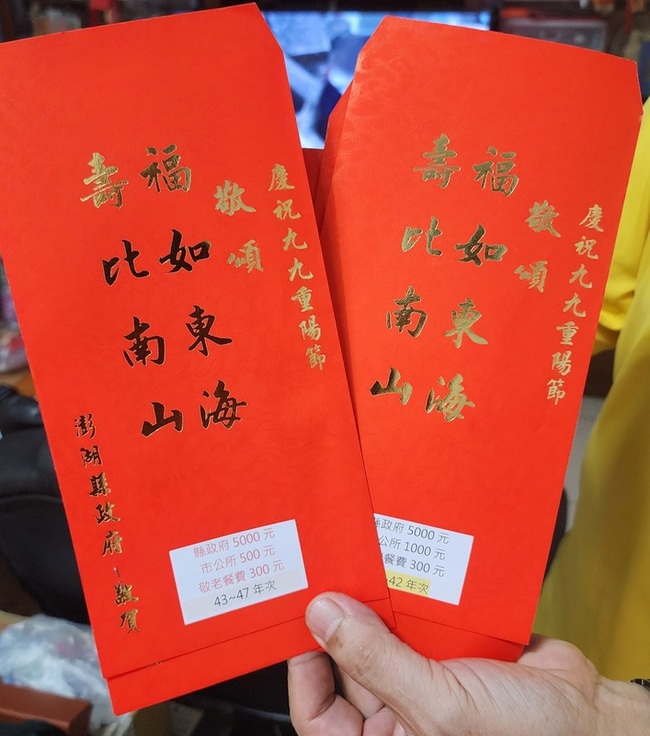 慶祝九九重陽節
敬頌
福如東海
壽比南山
澎湖縣政府 敬賀
縣政府 5000 元
市公所 500 元
敬老餐費 300 元
43~47 年次
慶祝九九重陽節
敬頌
福如東海
壽比南山
縣政府 5000 元
公所 1000 元
餐費 300 元
42 年次